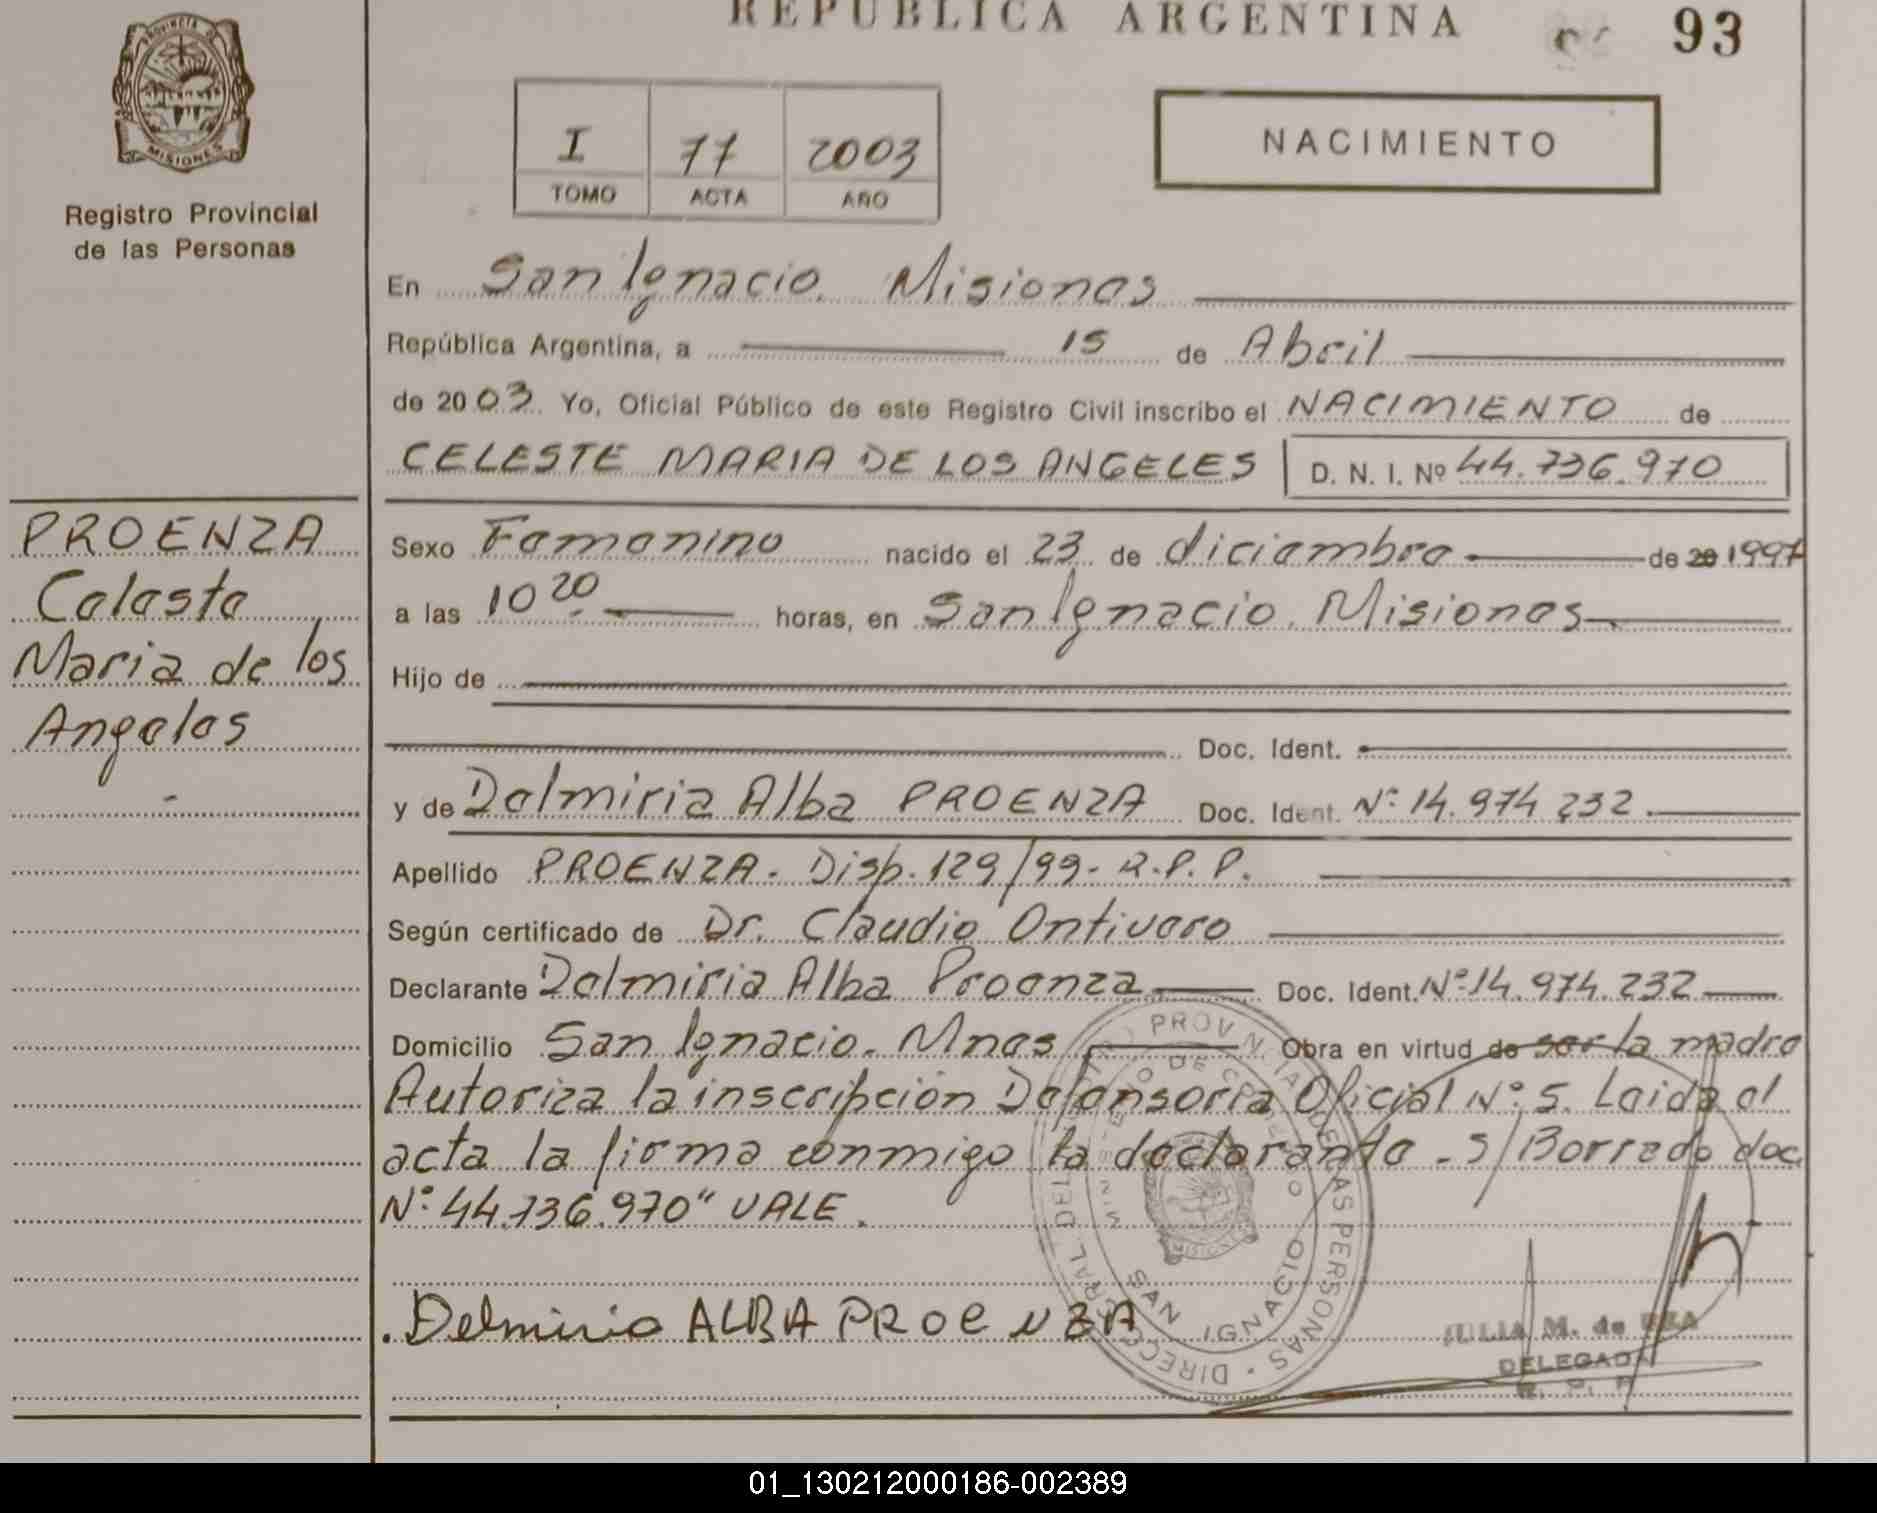 REPUBLICA ARGENTINA
93
PROVINCIA DE MISIONES
Registro Provincial
de las Personas
I 77 2003
TOMO ACTA AÑO
NACIMIENTO
En San Ignacio. Misiones
República Argentina, a 15 de Abril
de 2003 Yo, Oficial Público de este Registro Civil inscribo el NACIMIENTO de
CELESTE MARIA DE LOS ANGELES D. N. I. Nº 44.736.970
PROENZA
Celeste
Maria de los
Angeles
Sexo Femenino nacido el 23 de diciembre de 20 1997
a las 10 20 horas, en San Ignacio. Misiones
Hijo de
Doc. Ident.
y de Delmiria Alba PROENZA Doc. Ident. Nº 14.974.232
Apellido PROENZA. Disp. 129/99- R.P.P.
Según certificado de Dr. Claudio Ontivero
Declarante Delmiria Alba Proenza Doc. Ident. Nº 14.974.232
Domicilio San Ignacio. Mnes Obra en virtud de ser la madre
Autoriza la inscripción Defensoria Oficial Nº 5. Leida el
acta la firma conmigo la declarante. S/Borrado doc.
Nº 44.736.970" VALE.
Delmiria ALBA PROENZA
DIRECC. GRAL. DEL REGISTRO PROVINCIAL DE LAS PERSONAS
SAN IGNACIO
MISIONES
JULIA M. de
DELEGADA
R. P. P.
01_130212000186-002389